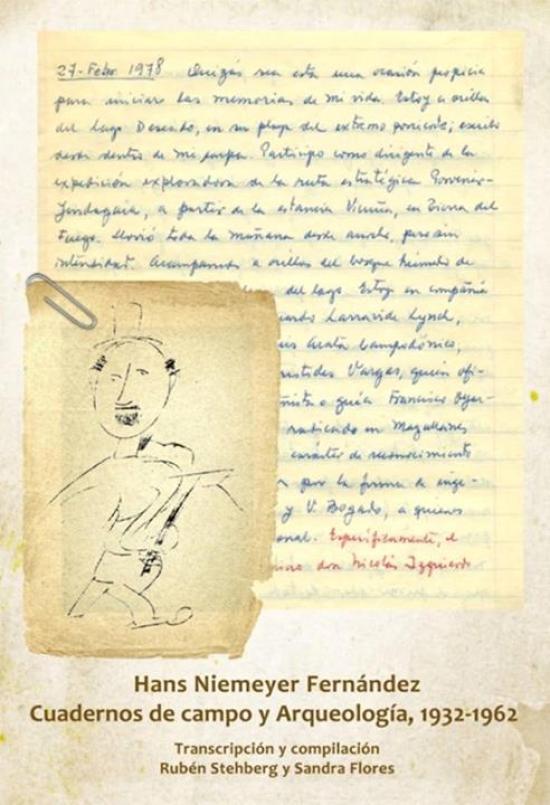 27-Febr 1978 Quizás sea esta una ocasión propicia
para iniciar las memorias de mi vida. Estoy a orillas
del lago Deseado, en su playa del extremo poniente; escribo
desde dentro de mi carpa. Participo como dirigente de la
expedición exploradora de la ruta estratégica Porvenir-
Yendegaia, a partir de la estancia Vicuña, en Tierra del
Fuego. Llovió toda la mañana desde anoche, pero sin
intensidad. Acampamos a orillas del bosque húmedo de
del lago. Estoy en compañía
Larravide Lynch,
Arata Campodónico,
Vargas, quien ofi-
o guía Francisco
radicado en Magallanes
carácter de reconocimiento
por la firma de inge-
y V. Bogado, a quienes
Específicamente, el
don Nicolás Izquierdo
Hans Niemeyer Fernández
Cuadernos de campo y Arqueología, 1932-1962
Transcripción y compilación
Rubén Stehberg y Sandra Flores